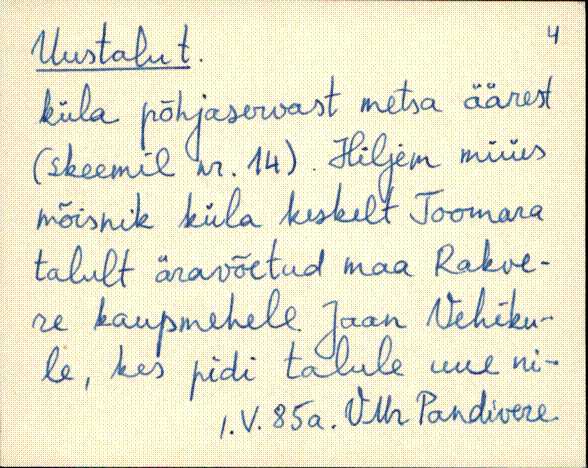 4
Uustalu t.
küla põhjaservast metsa äärest
(skeemil nr. 14). Hiljem müüs
mõisnik küla keskelt Toomara
talult äravõetud maa Rakve-
re kaupmehele Jaan Vehiku-
le, kes pidi talule uue ni-
1.V.85a. VMr Pandivere